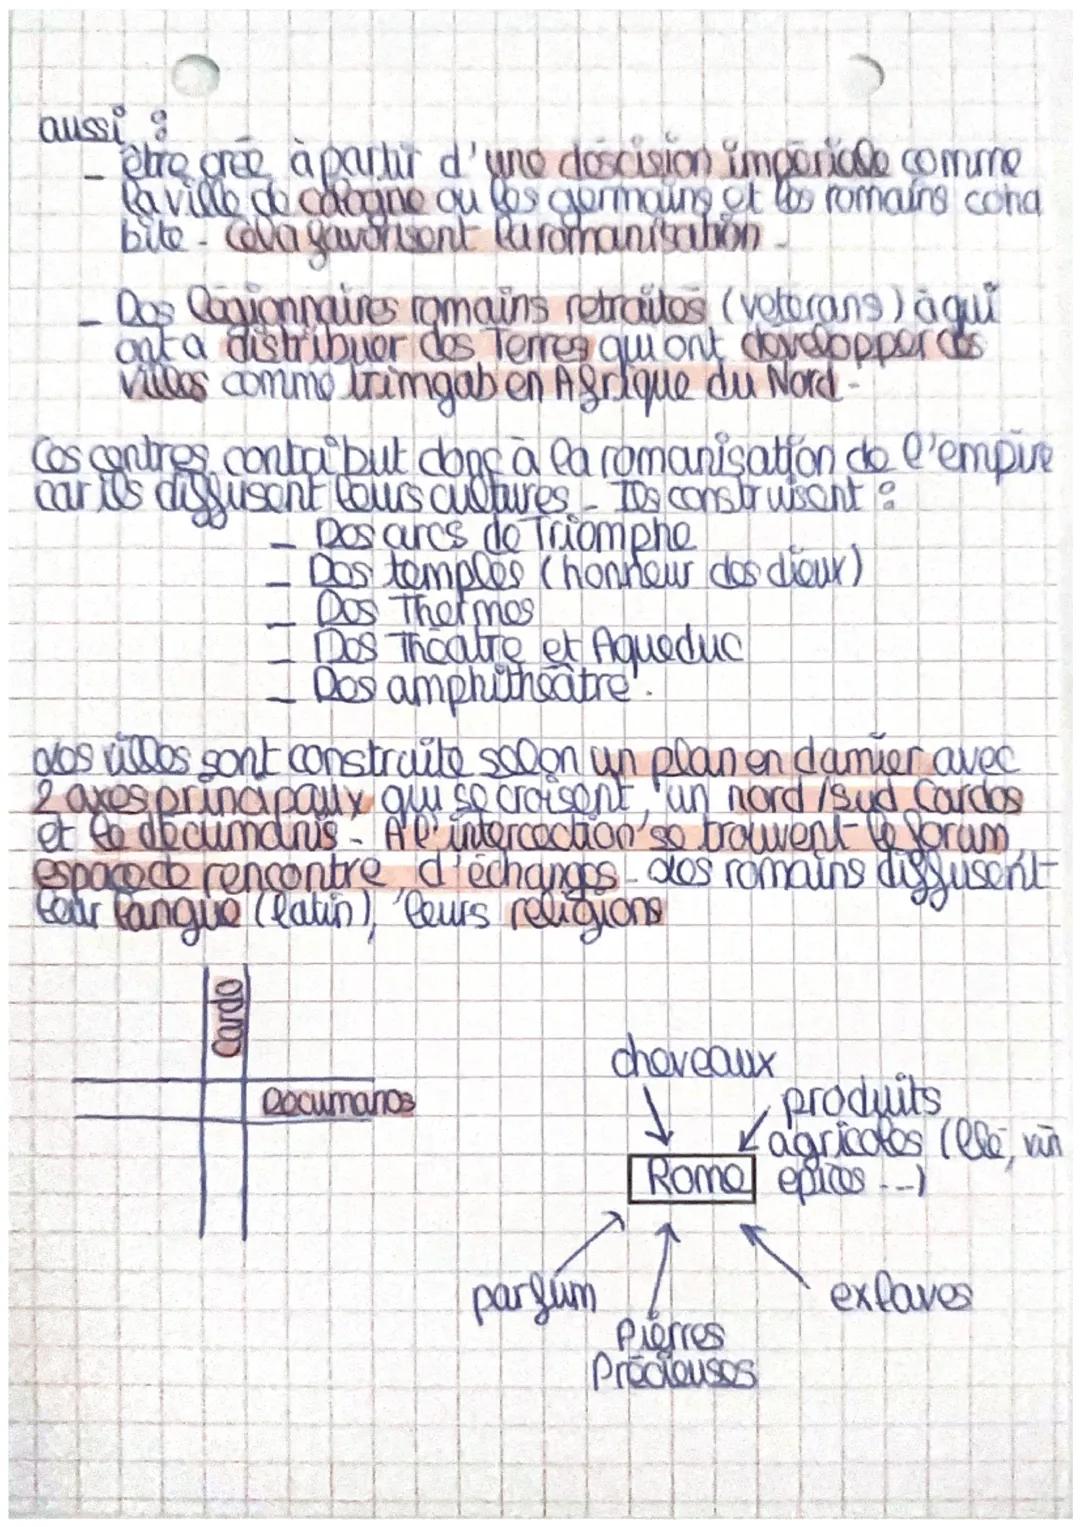 aussi :
- être crée à partir d'une descision impériale comme
la ville de cologne ou les germains et les romains coha
bite - Cela favorisent la romanisation -
- Des Légionnaires romains retraités (veterans) à qui
ont a distribuer des Terres qui ont developper des
villes comme trimgab en Afrique du Nord -
Ces centres contribut donc à la romanisation de l'empire
car ils diffusent leurs cultures - Ils construisent :
- Des arcs de Triomphe
- Des temples (honneur des dieux)
- Des Thermes
- Des Théatre et Aqueduc
- Des amphithéatre.
Les villes sont construite selon un plan en damier avec
2 axes principaux qui se croisent, un nord/sud Cardos
et le decumanis - A l'intercection se trouvent le forum
espace de rencontre d'échanges - Les romains diffusent
leur langue (latin), leurs religions
Cardo
Documanos
cheveaux
produits
agricoles (blé, vin
Rome epices ...)
parfum
exlaves
Pierres
Précieuses